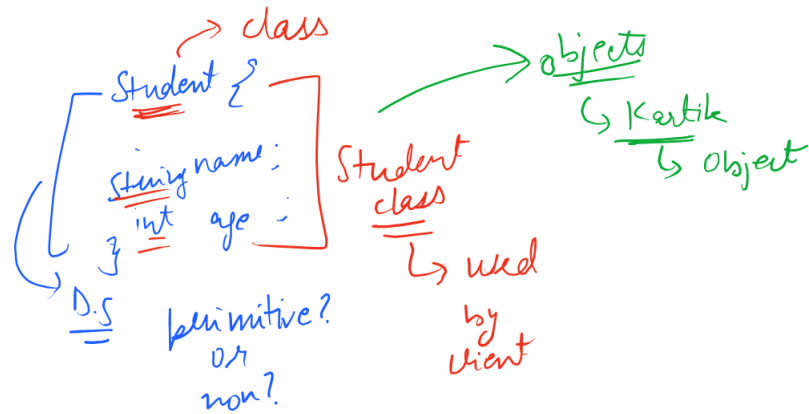 class
Student {
String name;
int age ;
}
D.S
primitive?
or
non?
Student
class
used
by
client
objects
Kartik
object